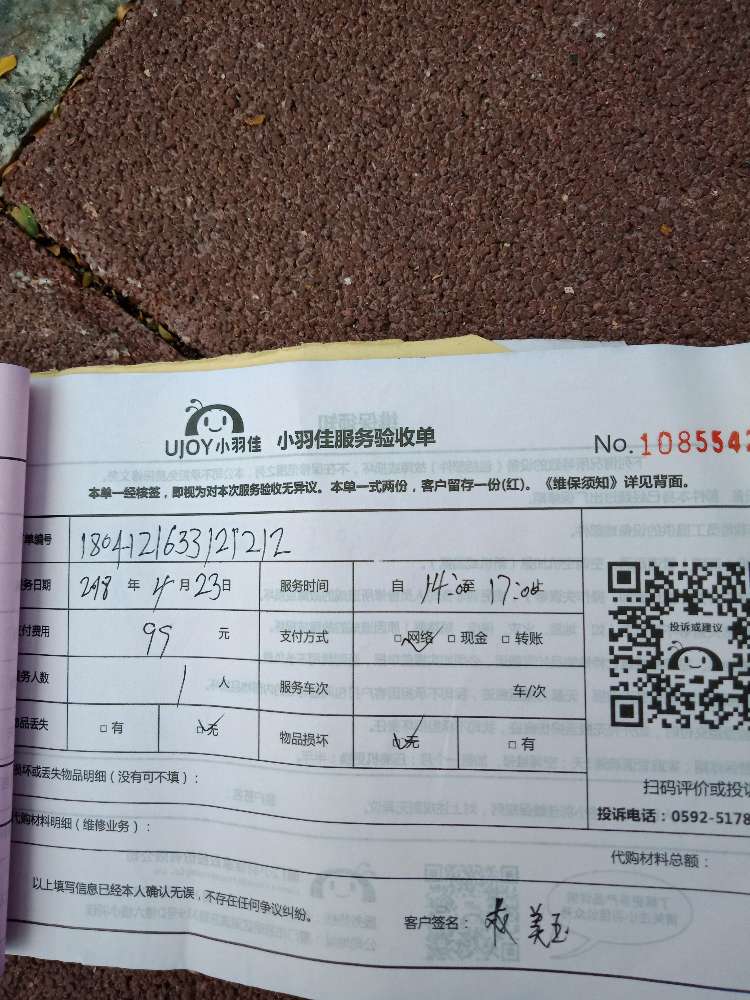 UJOY小羽佳 小羽佳服务验收单
No.1085542
本单一经核签，即视为对本次服务验收无异议。本单一式两份，客户留存一份(红)。《维保须知》详见背面。
单编号 1804121633121212
务日期 2018 年 4 月 23 日 服务时间 自 14:00 至 17:00 止
付费用 99 元 支付方式 □网络 □现金 □转账
务人数 1 人 服务车次 车/次
品丢失 □有 □无 物品损坏 □无 □有
投诉或建议
损坏或丢失物品明细（没有可不填）：
扫码评价或投诉
投诉电话：0592-5178
代购材料明细（维修业务）：
代购材料总额：
以上填写信息已经本人确认无误，不存在任何争议纠纷。
客户签名： 美玉